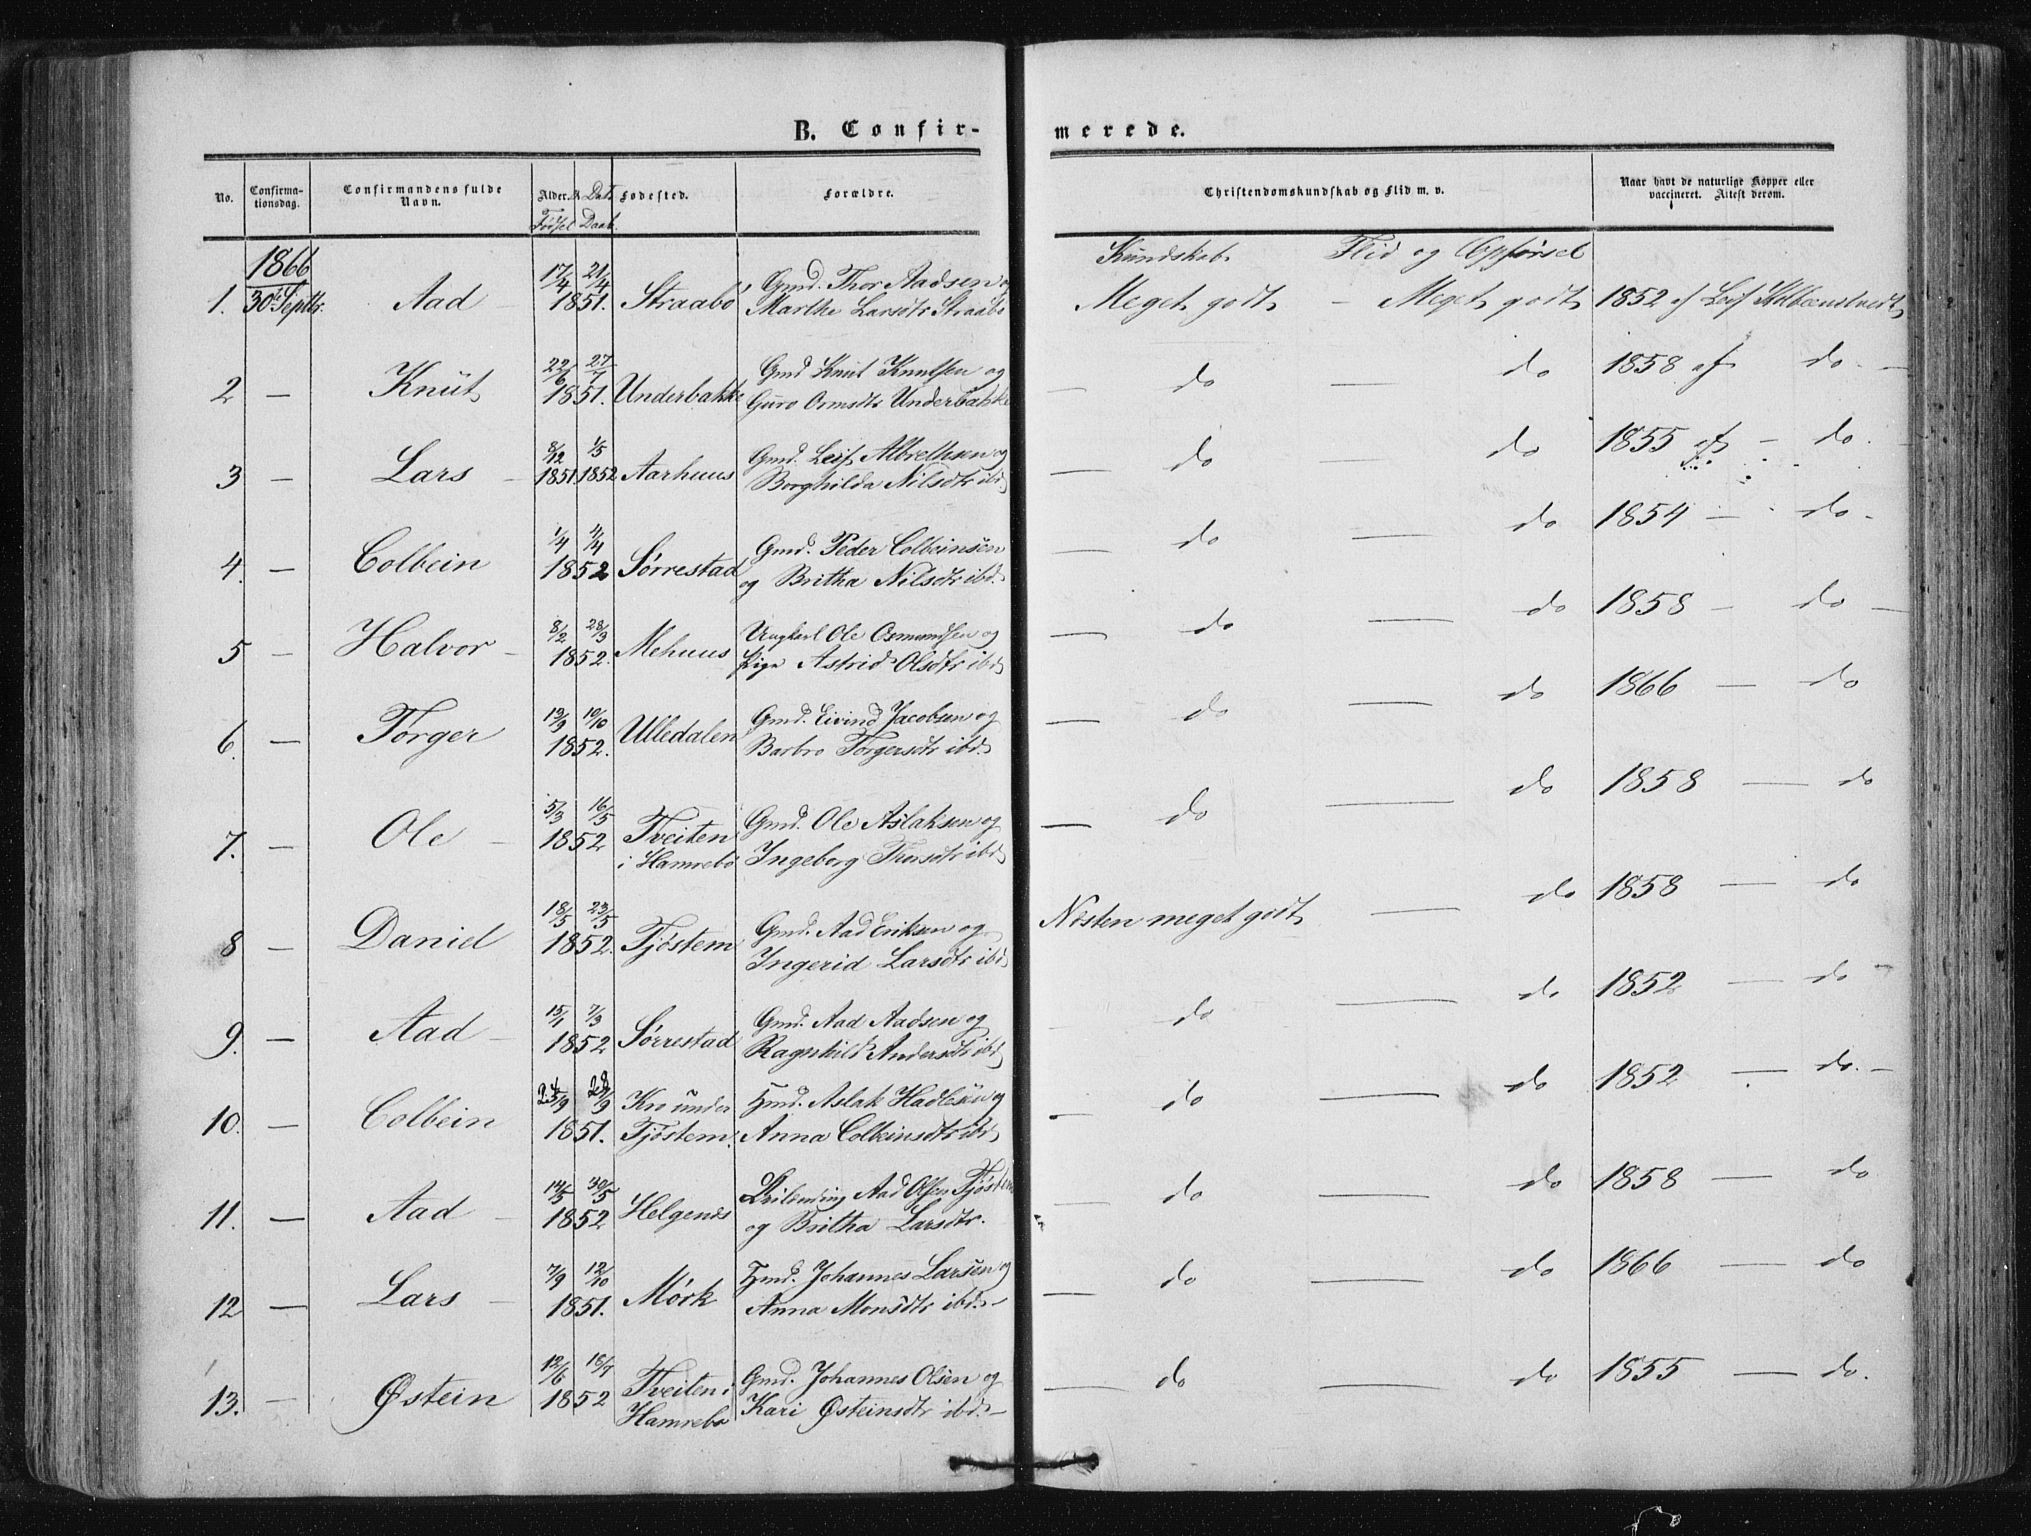 B. Confir-
merede.
No.
Confirma-
tionsdag.
Confirmandens fulde
Navn.
Alder. & Dat.
Fødsel Daab.
Fødested.
Forældre.
Christendomskundskab og Flid m. v.
Naar havt de naturlige Kopper eller
vaccineret. Attest derom.
1866
Kundskab. Flid og Opførsel
1. 30te Septbr. Aad 17/4 21/4 1851. Straabø Gmd. Thor Aadsen og
Marthe Larsdtr Straabø
Meget godt – Meget godt 1852 af Leif
2 — Knut 22/6 27/7 1851. Underbakke Gmd Knut Knutsen og
Guro Ormsdtr Underbakke
— do — do 1858 af do. —
3 — Lars 8/12 1851. 1/5 1852 Aarhuus Gmd. Leif Albrethsen og
Borghilda Nilsdtr ibd
— do — do 1855 af — do.
4. — Colbein 1/4 4/4 1852 Sørrestad Gmd. Peder Colbeinsen
og Britha Nilsdtr ibd.
— do — do 1854 — do.
5 — Halvor 8/2 28/3 1852. Mehuus Ungkarl Ole Osmundsen og
Pige Astrid Olsdtr ibd
— do — do 1858 — do —
6. — Torger 19/9 10/10 1852. Ulledalen Gmd. Eivind Jacobsen og
Barbro Torgersdtr ibd.
— do — do 1866 — do
7. — Ole 5/3 16/5 1852 Tveiten
i Hamrebø Gmd. Ole Aslaksen og
Ingeborg Trusdtr ibd
— do — do 1858 — do
8 — Daniel 18/5 23/5 1852. Tjøstem Gmd. Aad Eriksen og
Ingerid Larsdtr ibd
Næsten meget godt — do 1858 — do
9. — Aad 15/1 7/3 1852 Sørrestad Gmd. Aad Aadsen og
Ragnhild Andersdtr ibd
do — do 1852 — do
10. — Colbein 28/9 1851. Kro under
Tjøstem. Hmd. Aslak Hadlesen og
Anna Colbeinsdtr ibd
— do — do 1852 — do. —
11. — Aad 14/5 30/5 1852 Helgenes Aad Olsen Tjøstem
og Britha Larsdtr.
— do — do 1858 — do
12 — Lars 7/9 12/10 1851. Mørk Hmd. Johannes Larsen og
Anna Monsdtr ibd. —
— do — do 1866 — do
13. — Østein 12/6 18/7 1852 Tveiten i
Hamrebø Gmd. Johannes Olsen og
Kari Østeinsdtr ibd. —
— do — do 1855 — do.